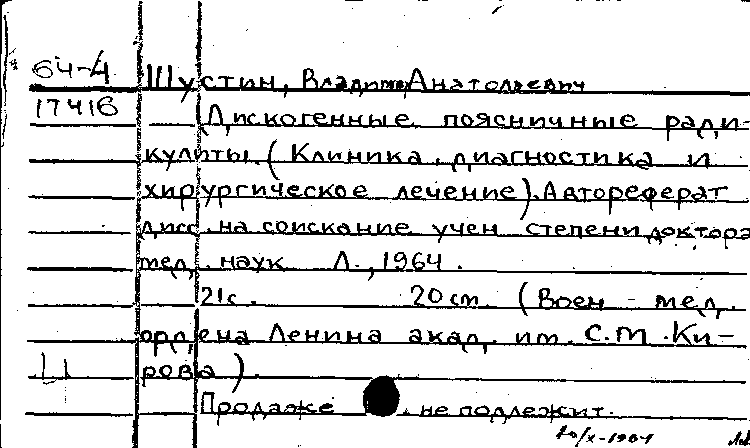 64-4 Шустин, Владимир Анатольевич
17416 Дискогенные поясничные ради-
кулиты. (Клиника, диагностика и
хирургическое лечение). Автореферат
дисс. на соискание учен степени доктора
мед. наук Л., 1964.
21с. 20 см. (Воен-мед.
ордена Ленина акад. им. С.М. Ки-
рова).
Продаже не подлежит.